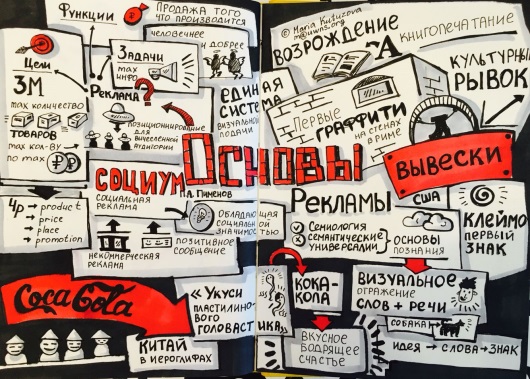 Функции
Продажа того
что производится
человечнее
и добрее
Цели
3М
max количество
товаров
max кол-ву
по max
Задачи
max
инфо
Реклама
?
позиционирование
для
внеземной
аудитории
един
систем
визуальной
подачи
социум
социальная
реклама
П.А. Пименов
некоммерческая
реклама
позитивное
сообщение
обладающ
социальной
значимост
4p → product
→ price
→ place
→ promotion
Coca Cola
Китай
в иероглифах
«Укуси
пластилино-
вого
головаст
Основы
Рекламы
© Maria Kutuzova
Возрождение
книгопечатание
культурный
рывок
ая
ма
Первые
граффити
на стенах
в Риме
Вывески
США
клеймо
первый
знак
ющая
ной
стью
Семиология
семантические
универсалии
основы
познания
визуальное
отражение
слов + речи
собака
идея → слово → знак
ика»
Кока-
кола
вкусное
бодрящее
счастье